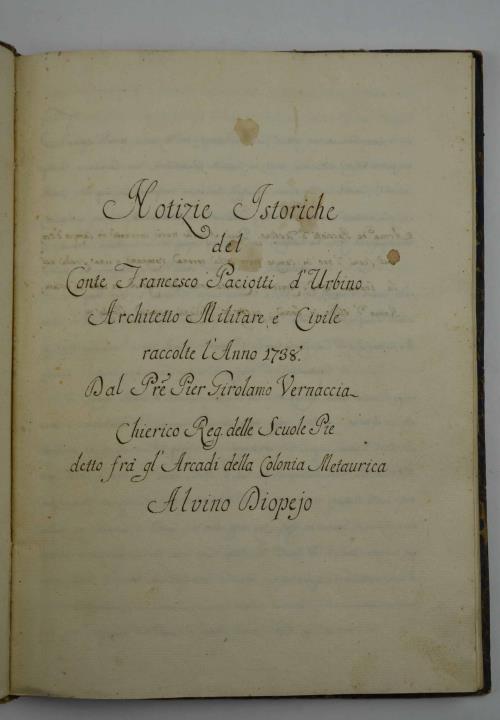 Notizie Istoriche
del
Conte Francesco Paciotti d'Urbino
Architetto Militare, e Civile
raccolte l'Anno 1738.
Dal Pre Pier Girolamo Vernaccia
Chierico Reg. delle Scuole Pie
detto frà gl'Arcadi della Colonia Metaurica
Alvino Diopejo